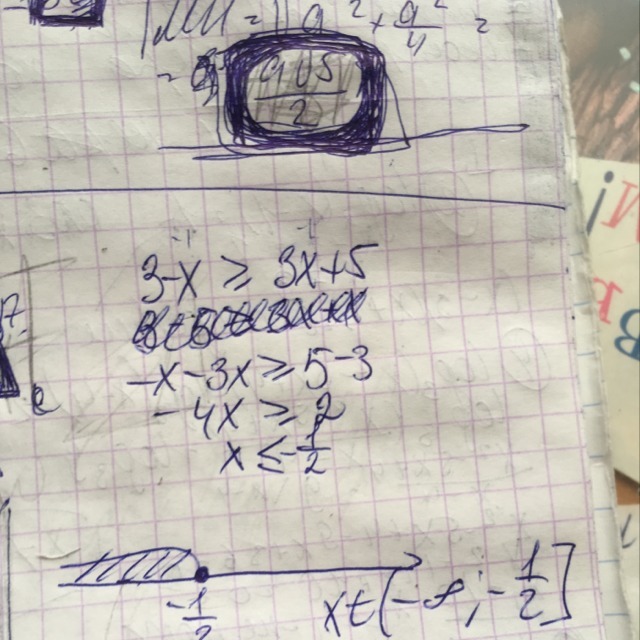 = √a² + a²/4 =
= a√5/2
3-x ≥ 3x+5
-x-3x ≥ 5-3
-4x ≥ 2
x ≤ -1/2
-1/2
x∈(-∞; -1/2]